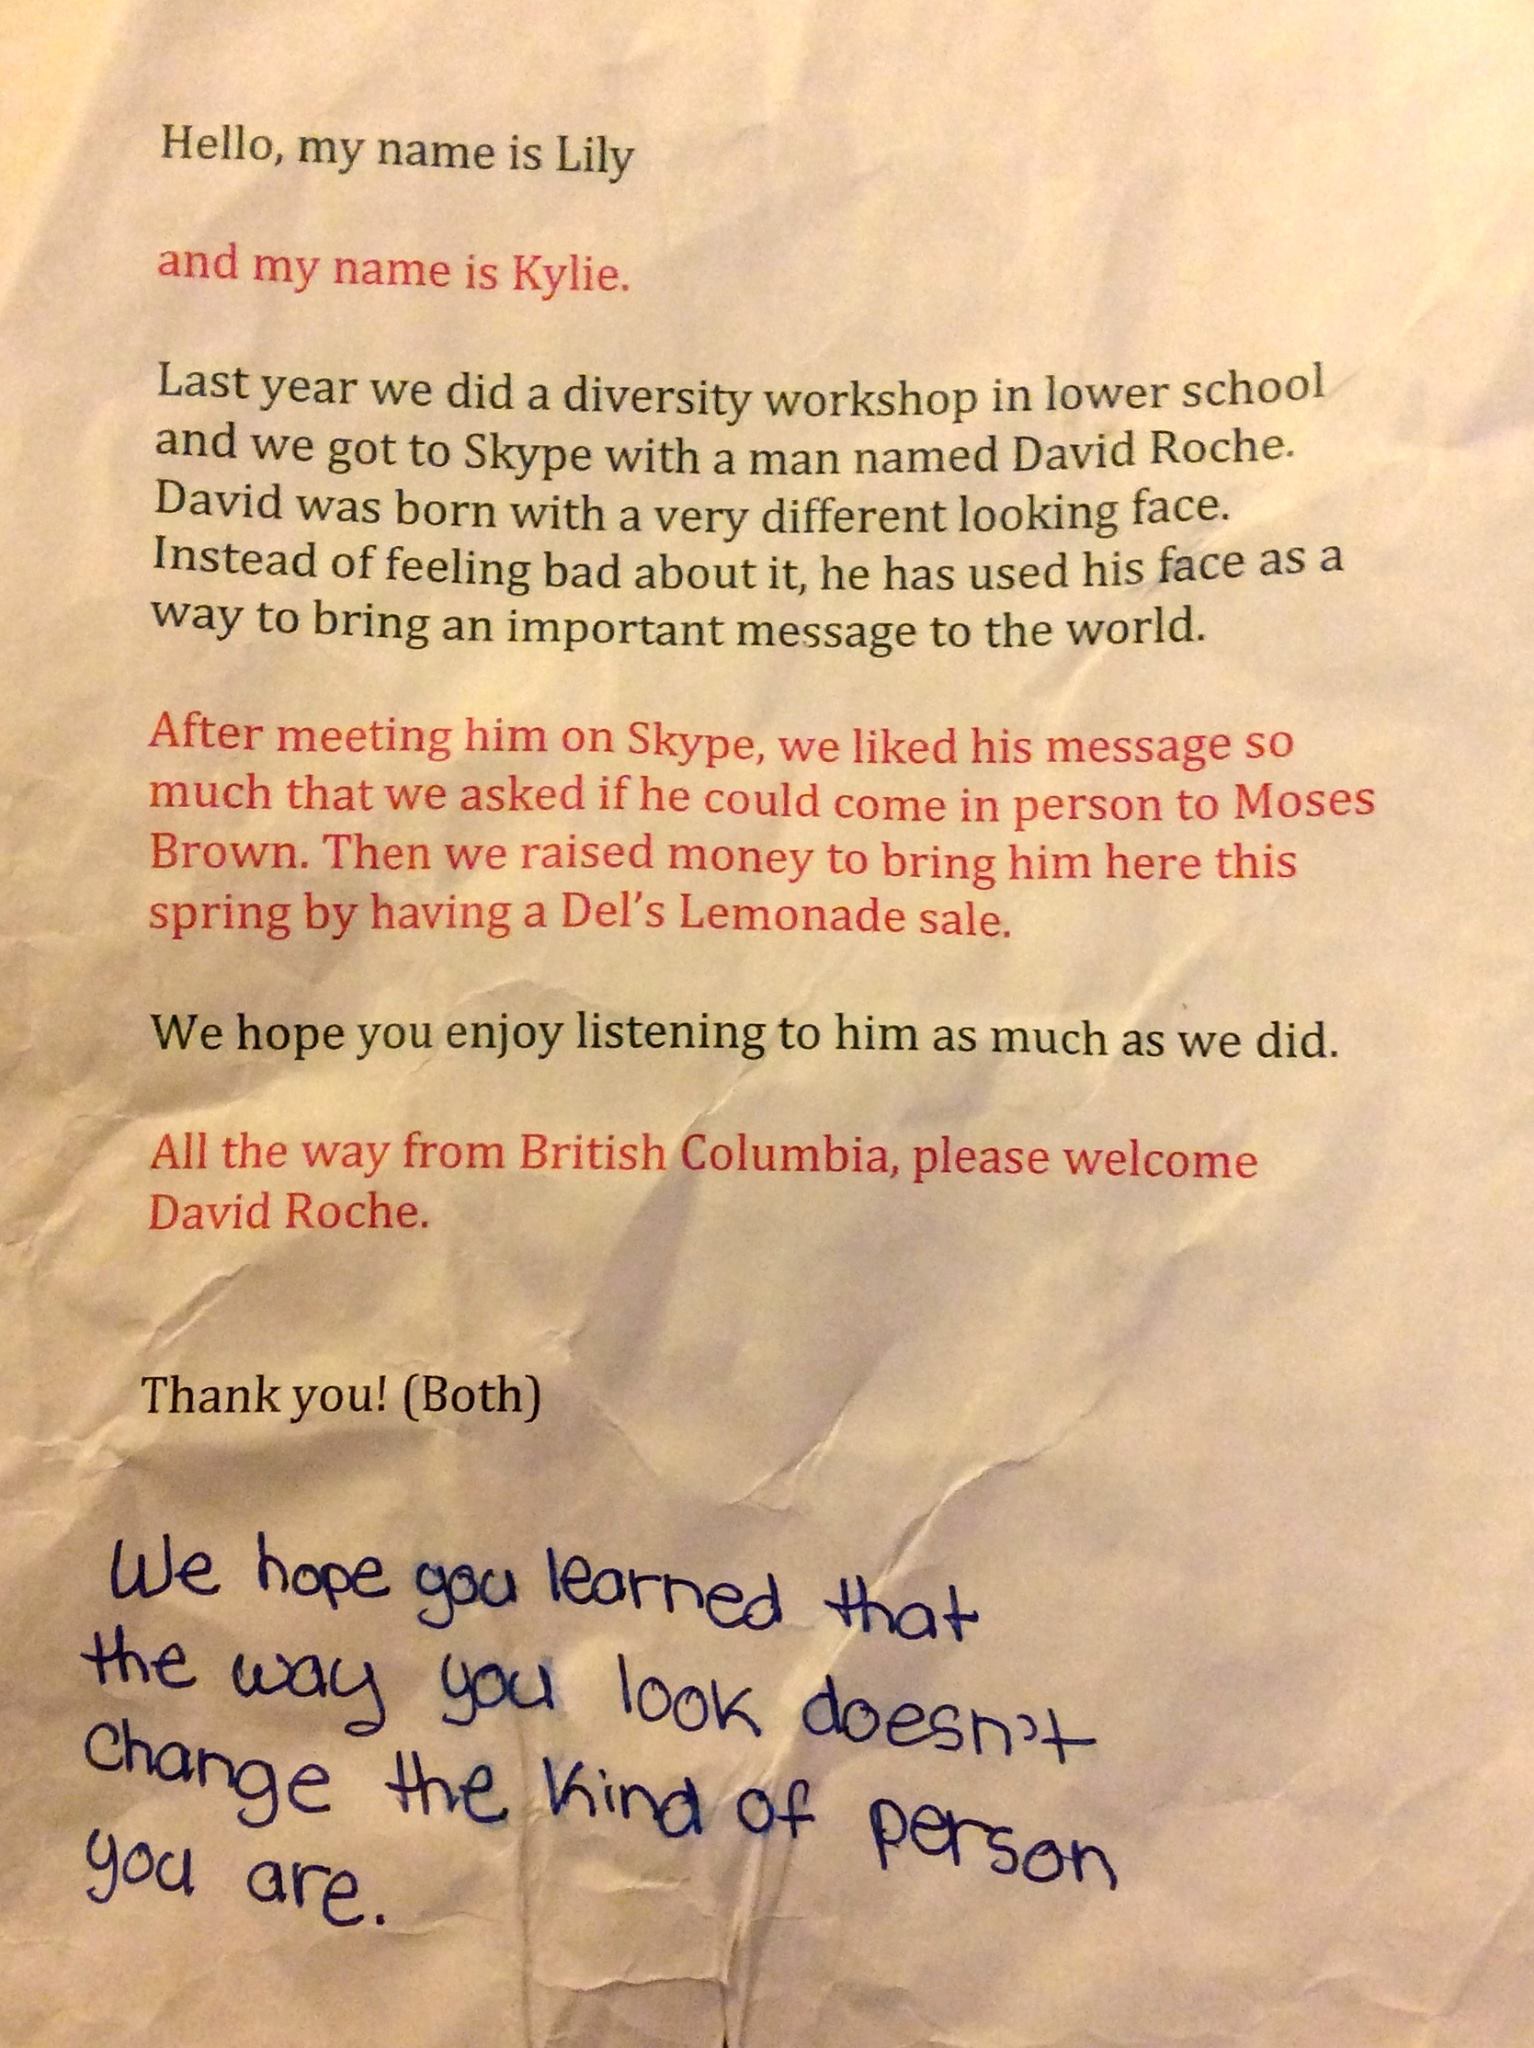 Hello, my name is Lily
and my name is Kylie.
Last year we did a diversity workshop in lower school
and we got to Skype with a man named David Roche.
David was born with a very different looking face.
Instead of feeling bad about it, he has used his face as a
way to bring an important message to the world.
After meeting him on Skype, we liked his message so
much that we asked if he could come in person to Moses
Brown. Then we raised money to bring him here this
spring by having a Del’s Lemonade sale.
We hope you enjoy listening to him as much as we did.
All the way from British Columbia, please welcome
David Roche.
Thank you! (Both)
We hope you learned that
the way you look doesn't
change the kind of person
you are.